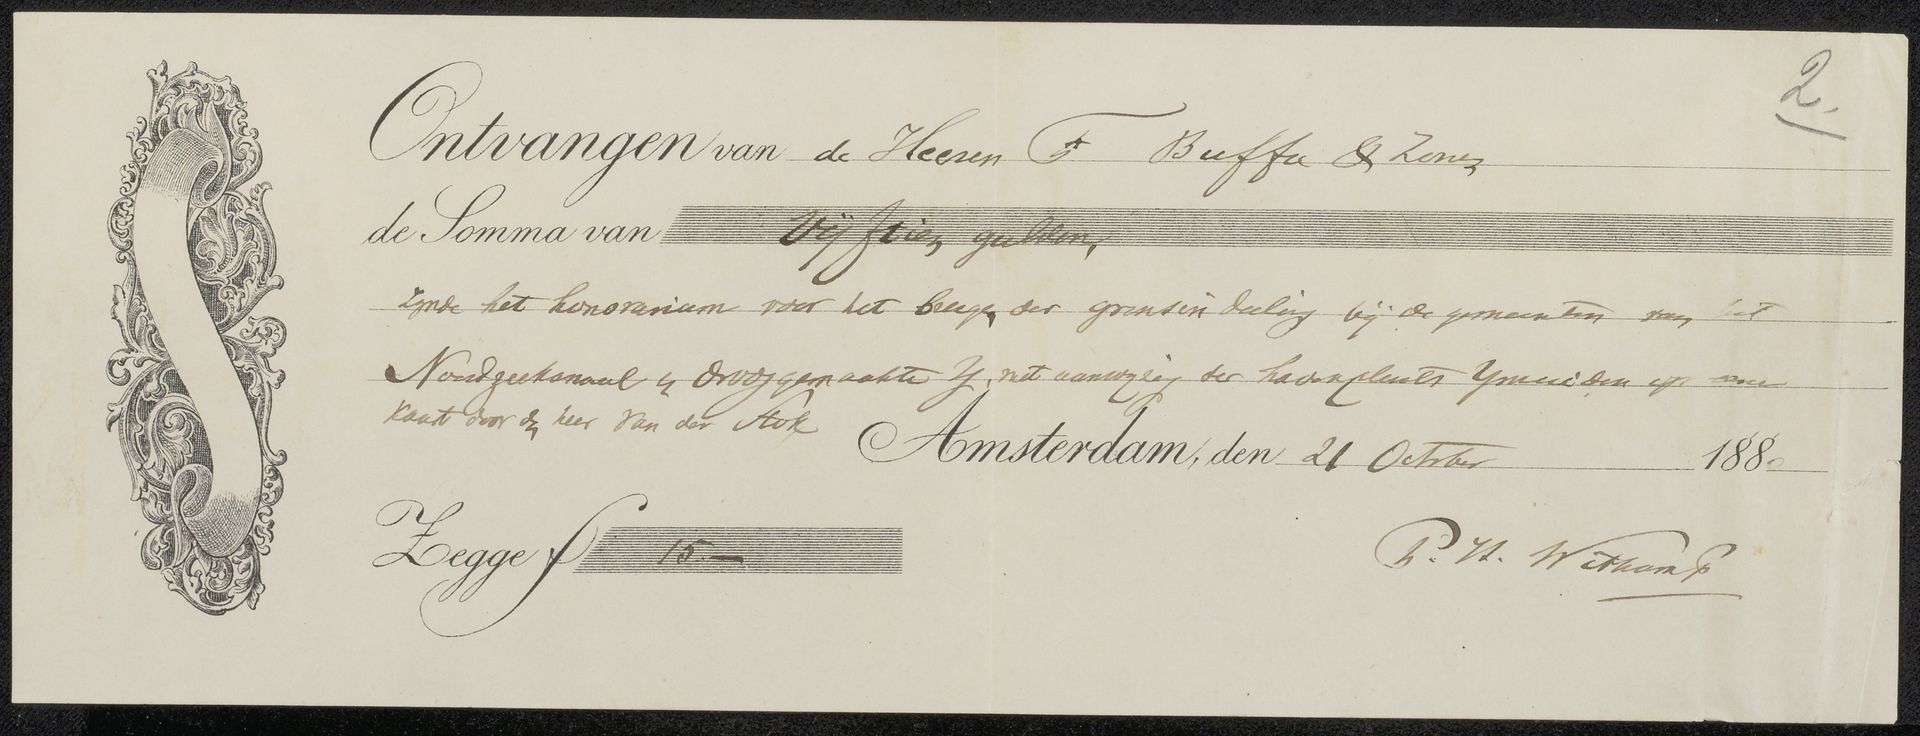 2.
Ontvangen van de Heeren F Buffa & Zonen
de Somma van Vijftien gulden,
zijnde het honorarium voor het der grensin deeling bij de gemeenten van het
Noordzeekanaal en drooggemaakte Y, met aanwijzing der havenplaats Ymuiden op
kaart door den heer Van der Stok
Amsterdam, den 21 October 1880
Zegge f 15.—
P. H. Witkamp